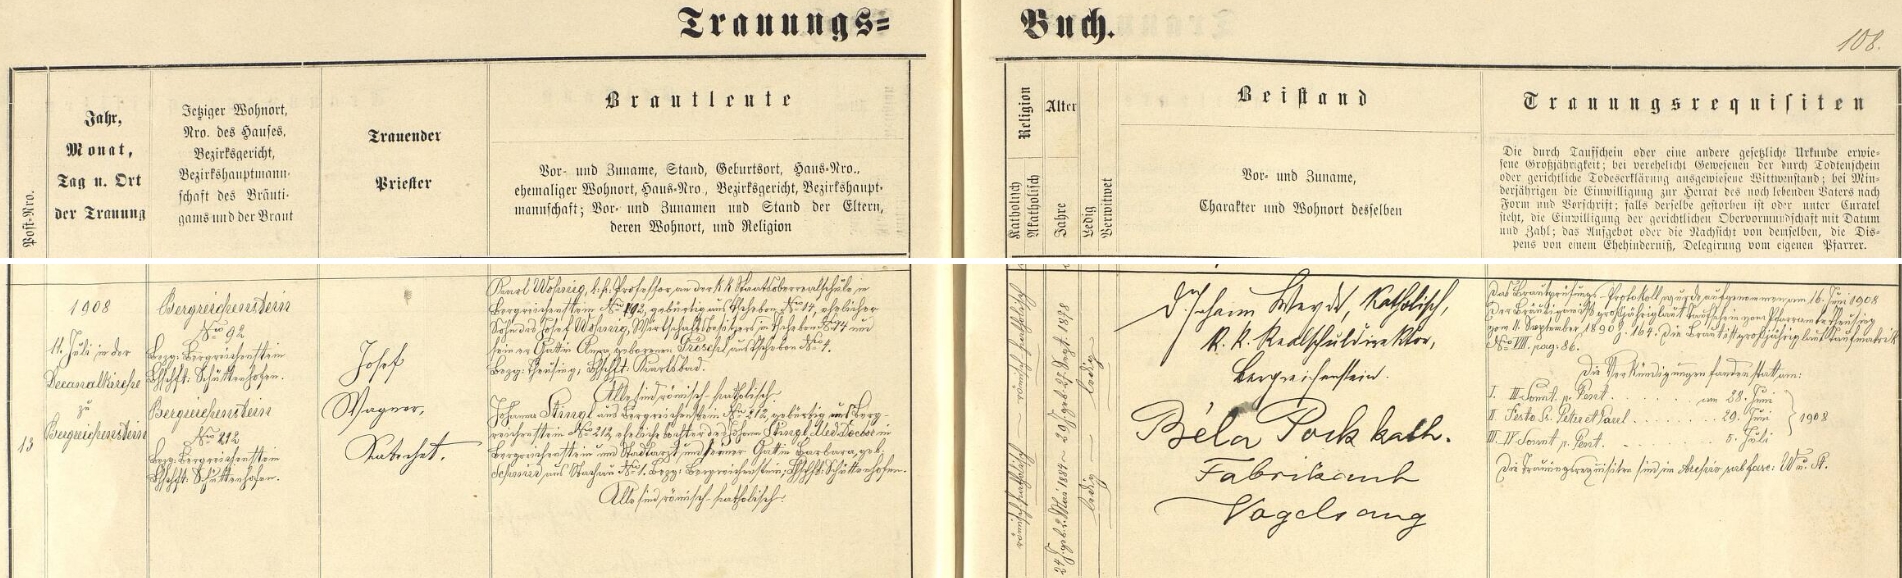 Trauungs=
Buch.
108.
Post-Nro.
Jahr,
Monat,
Tag u. Ort
der Trauung
Jetziger Wohnort,
Nro. des Hauses,
Bezirksgericht,
Bezirkshauptmann-
schaft des Bräuti-
gams und der Braut
Trauender
Priester
Brautleute
Vor- und Zuname, Stand, Geburtsort, Haus-Nro.,
ehemaliger Wohnort, Haus-Nro., Bezirksgericht, Bezirkshaupt-
mannschaft; Vor- und Zunamen und Stand der Eltern,
deren Wohnort, und Religion
Religion
Katholisch
Akatholisch
Alter
Jahre
Ledig
Verwitwet
Beistand
Vor- und Zuname,
Charakter und Wohnort desselben
Trauungsrequisiten
Die durch Taufschein oder eine andere gesetzliche Urkunde erwie-
sene Großjährigkeit; bei verehelicht Gewesenen der durch Todtenschein
oder gerichtliche Todeserklärung ausgewiesene Wittwenstand; bei Min-
derjährigen die Einwilligung zur Heirat des noch lebenden Vaters nach
Form und Vorschrift; falls derselbe gestorben ist oder unter Curatel
steht, die Einwilligung der gerichtlichen Obervormundschaft mit Datum
und Zahl; das Aufgebot oder die Nachsicht von demselben, die Dis-
pens von einem Ehehinderniß, Delegirung vom eigenen Pfarrer.
13
1908
11. Juli in der
Decanalkirche
zu
Bergreichenstein
Bergreichenstein
No 92
Bezg: Bergreichenstein
Bhschft: Schüttenhofen.
Bergreichenstein
No 212
Bezg: Bergreichenstein
Bhschft: Schüttenhofen.
Josef
Wagner,
Katechet.
Karl Wohnig, k.k. Professor an der k.k. Staatsoberrealschule in
Bergreichenstein No 92, gebürtig aus Tscheben No 14, ehelicher
Sohn des Josef Wohnig, Wirtschaftsbesitzers in Tscheben No 14 und
seiner Gattin Anna geborenen Tröschel aus Tscheben No 4.
Bezg: Theusing, Bhschft: Karlsbad.
Alle sind römisch-katholisch.
Johanna Stingl aus Bergreichenstein No 212, gebürtig aus Berg-
reichenstein No 212, eheliche Tochter des Johann Stingl, Med. Doctor in
Bergreichenstein und Stadtarzt, und seiner Gattin Barbara, geb.
aus Stachau No 1. Bezg: Bergreichenstein, Bhschft: Schüttenhofen.
Alle sind römisch-katholisch.
24 J. geb. 2. Mai 1884 – 20 J. geb. 27. Sept. 1878
ledig
ledig
Weyde, katholisch,
k. k. Realschuldirektor,
Bergreichenstein.
Béla Pock kath.
Fabrikant
Vogelsang
Das Brautprüfungs-Protokoll wurde aufgenommen am 16. Juni 1908
Der Bräutigam ist großjährig laut Taufschein vom Pfarramte Theusing
vom 11. September 1890 Z: 167. Die Braut ist großjährig laut Taufmatrik
No VIII. pag: 86.
Die Verkündigungen fanden statt am:
I. III Sonnt. p. Pent. . . . . . . am 28. Juni
II. Festo S. Petri et Pauli . . . . . . . 29. Juni
III. IV Sonnt. p. Pent. . . . . . . . 5. Juli
1908
Die Trauungsrequisiten sind im Archiv sub fasc: W u. St.